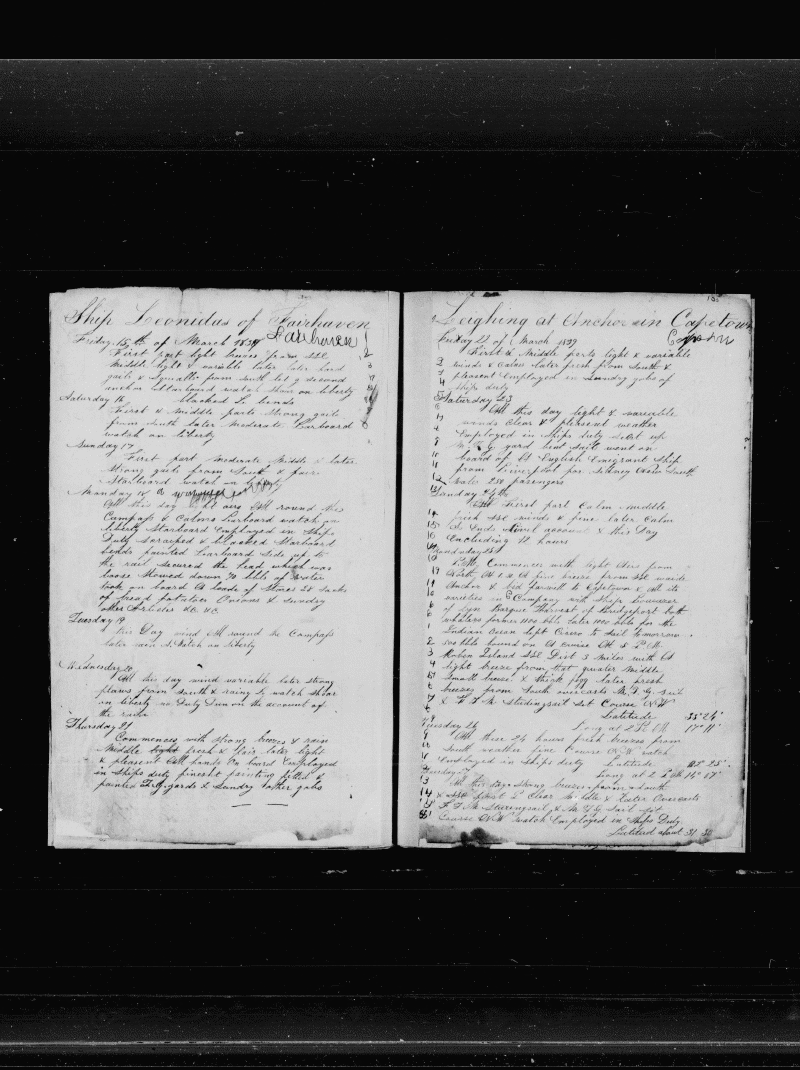 Ship Leonidas of Fairhaven
Fairhaven
Friday 15th of March 1839
First part light breeses from SSE
Middle light & variable later
gails & squalls from south let g second
anchor Starboard watch on liberty
Saturday 16 blacked L. bends
First & middle parts strong gails
from South later moderate Larboard
watch on liberty
Sunday 17
First part moderate Middle & later
strong gails from South & fair
Starboard watch on liberty
Monday 18
All this day light airs All round the
Compass & Calms Larboard watch on
liberty Starboard Employed in Ships
Duty Scraiped & blacked Starboard
bends painted Larboard Side up to
the rail secured the head which was
loose Stowed down 70 bbls of Water
took on board A Loade of Stores 25 Sacks
of bread potatoes Onions & Sundry
other Articles &C &C
Tuesday 19
this Day wind All round the Compass
later rain A Watch on liberty
Wednesday 20
All this day wind variable later strong
flaws from South & rainy L watch Shore
on liberty no Duty Dun on the account of
the rain
Thursday 21
Commences with strong breeses & raise
Middle light fresh & fair later light
& pleasent All hands on board Employed
in Ships duty finesht painting fitted &
painted yards & Sundry other jobs
Leighing at Anchor in Capetown
Friday 22 of March 1839
First & Middle parts light & variable
winds & Calms later fresh from South &
pleasent Employed in Sundry jobs of
ships duty
Saturday 23
All this day light & variable
winds Clear & pleasent weather
Employed in Ships duty Sent up
M. T. G. yard bent Sails went on
board of A English Emigrant Ship
from Liverpool for Sidney New South
Wales 250 pasengers
Sunday 24th
First part Calm middle
fresh SSE winds & fine later Calm
So Ends Nimel account & this Day
Encluding 12 hours
Monday 25
Commences with light Aers from
North At 6 A fine breese from SSE waide
Anchor & bid farwell to Capetown & All its
varieties in Company with Ships
of Lyn Barque Harvest of Bridgeport both
whalers former 1100 bbls later 1000 bbls for the
Indian Ocean left Cicero to Sail tomorrow
500 bbls bound on A Cruise At 8 P M
Roben Island SSE Dist 3 Miles with A
light breese from that quarter Middle
Small breese & thick fogg later fresh
breeses from South overcasts M. T. G. Sail
& F T M studingsail Set Course NW
Latitude 33°24'
Tuesday 26 Long at 2 P M 17°11'
All these 24 hours fresh breeses from
South weather fine Course NW watch
Employed in Ships duty Latitude 25'
Long at 2 P M 14°17'
All this day Strong breeses from South
& SSE first P Clear Middle & Later Overcasts
F T M Studingsail & M T G Sail Set
Course NW Watch Employed in Ships Duty
Latitud about 31